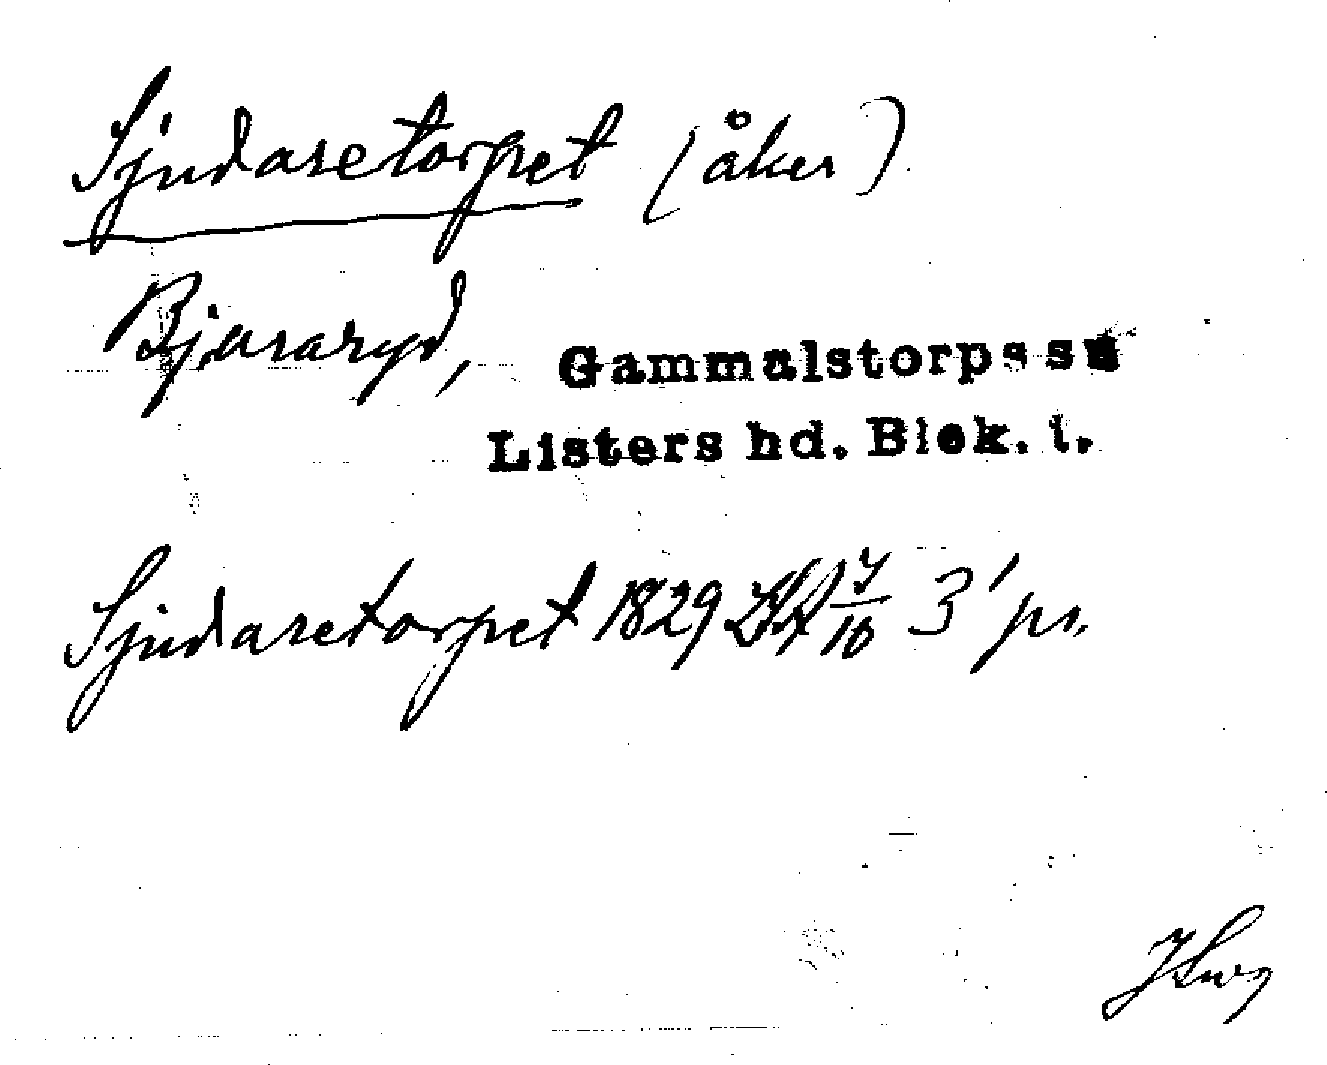 Sjudaretorpet (åker)
Bjäraryd, Gammalstorps sn
Listers hd. Blek. l.
Sjudaretorpet 1829 LSA 7/10 3' pr.